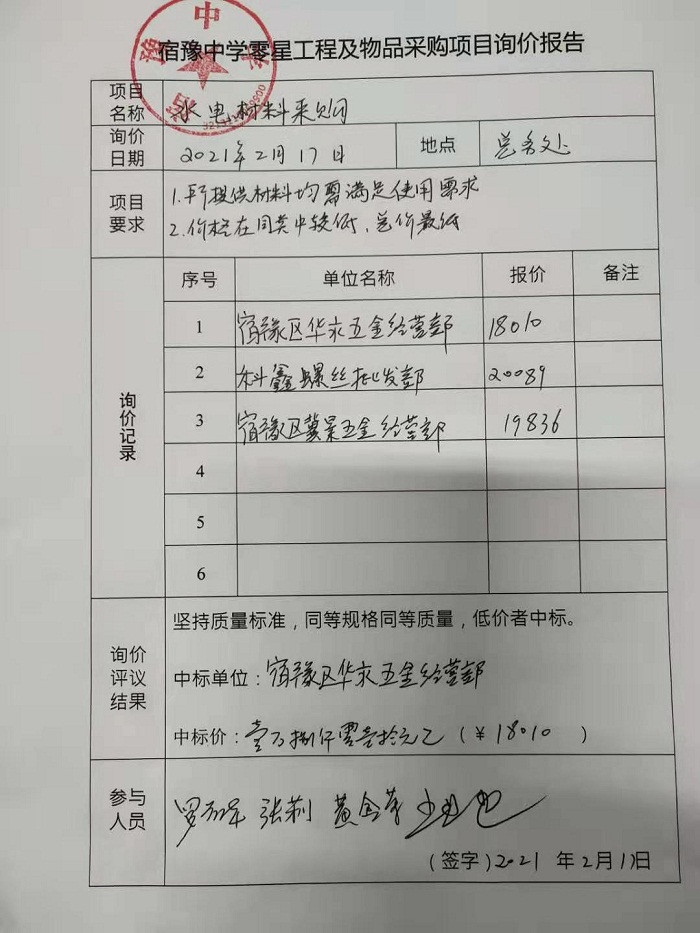 宿豫中学零星工程及物品采购项目询价报告
项目名称 水电材料采购
询价日期 2021年2月17日 地点 总务处
项目要求 1.所提供材料均需满足使用需求
2.价格在同类中较低,总价最低
询价记录 序号 单位名称 报价 备注
1 宿豫区华永五金经营部 18010
2 科鑫螺丝批发部 20089
3 宿豫区冀景五金经营部 19836
4
5
6
询价评议结果 坚持质量标准，同等规格同等质量，低价者中标。
中标单位：宿豫区华永五金经营部
中标价：壹万捌仟零壹拾元 (￥18010)
参与人员 张莉
(签字)2021年2月17日